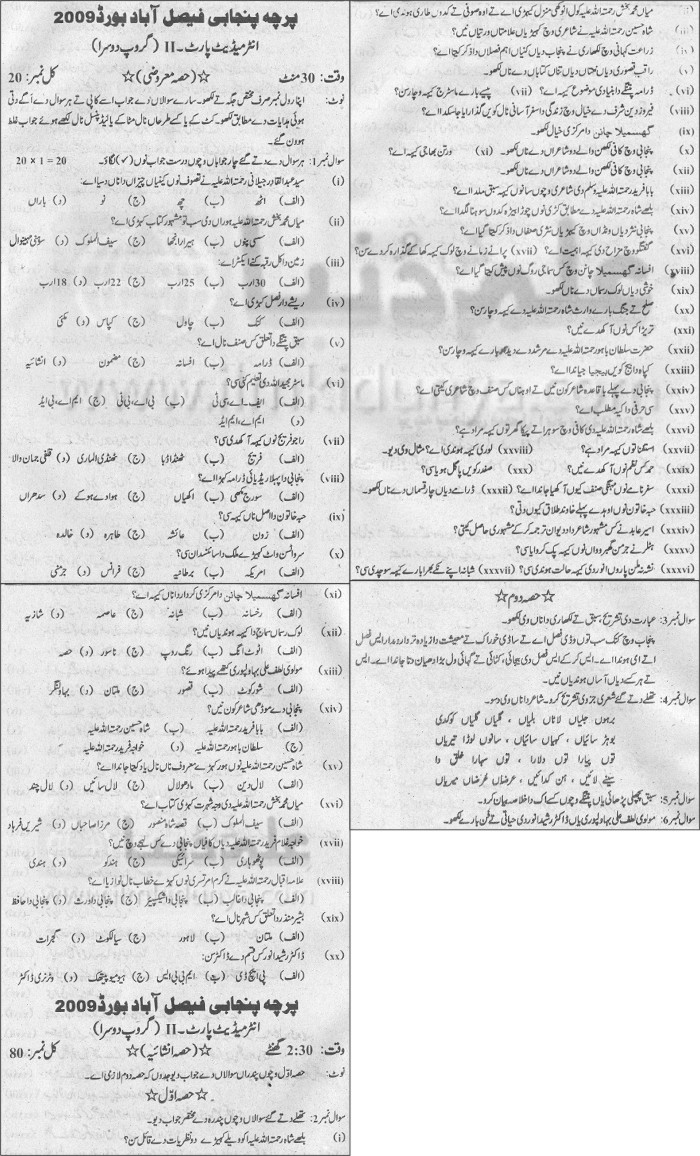 پرچہ پنجابی فیصل آباد بورڈ 2009
انٹرمیڈیٹ پارٹ-II (گروپ دوسرا)
وقت: 30 منٹ ☆(حصہ معروضی)☆ کل نمبر: 20
نوٹ: اپنا رول نمبر صرف مختص جگہ تے لکھو۔ سارے سوالاں دے جواب ایسے کاپی تے ہر سوال دے اگے دتی
ہوئی ہدایات دے مطابق لکھو۔ کٹ کے یا کسے طرحاں نال مٹا کے یا لیڈ پنسل نال لکھے ہوئے جواب غلط
ہوون گے۔
سوال نمبر 1: ہر سوال دے دتے گئے چار جواباں وچوں درست جواب نوں (✓) لگاؤ۔ 20 × 1 = 20
(i) سید عبدالقادر جیلانی رحمتہ اللہ علیہ نے تصوف نوں کنیاں چیزاں دا ناں دسیا اے:
(الف) اٹھ (ب) چھ (ج) نو (د) باراں
(ii) میاں محمد بخش رحمتہ اللہ علیہ ہوراں دی سب توں مشہور کتاب کہڑی اے؟
(الف) سسی پنوں (ب) ہیر رانجھا (ج) سیف الملوک (د) سوہنی مہینوال
(iii) زمین دا کل رقبہ کنے ایکڑ اے:
(الف) 30 ارب (ب) 25 ارب (ج) 22 ارب (د) 18 ارب
(iv) ریشے دار فصل کہڑی اے؟
(الف) کنک (ب) چاول (ج) کپاس (د) مکئی
(v) سبق پنگے دا تعلق کس صنف نال اے؟
(الف) ڈرامہ (ب) افسانہ (ج) مضمون (د) انشائیہ
(vi) ماسٹر مجید اللہ دی تعلیم کی سی؟
(الف) ایف۔اے سی ٹی (ب) بی اے، بی ٹی (ج) ایم اے، بی ایڈ
(د) ایم اے، ایم ایڈ
(vii) راجو فریج نوں کیہ آکھدی سی؟
(الف) فریج (ب) ٹھنڈا ڈبا (ج) ٹھنڈی الماری (د) قلفی جمان والا
(viii) پنجابی دا پہلا ریڈیائی ڈرامہ کہڑا اے؟
(الف) سورج مکھی (ب) اکھیاں (ج) ہوا دے ہوکے (د) سدھراں
(ix) حبہ خاتون دا اصل ناں کیہ سی؟
(الف) زون (ب) عائشہ (ج) طاہرہ (د) خالدہ
(x) سر واٹسن واٹ کہڑے ملک دا سائنسدان سی؟
(الف) امریکہ (ب) برطانیہ (ج) فرانس (د) جرمنی
(xi) افسانہ گھسمیلا چانن دا مرکزی کردار دا ناں کیہ اے؟
(الف) رخسانہ (ب) شبانہ (ج) عاصمہ (د) شازیہ
(xii) لوک رساں سماج دا کیہ ہوندیاں نیں؟
(الف) انوٹ انگ (ب) رنگ روپ (ج) ناسور (د) حصہ
(xiii) مولوی لطف علی بہاولپوری کتھے پیدا ہوئے؟
(الف) شورکوٹ (ب) قصور (ج) ملتان (د) بہاولنگر
(xiv) پنجابی دے موڈھی شاعر کون نیں؟
(الف) بابا فرید رحمتہ اللہ علیہ (ب) شاہ حسین رحمتہ اللہ علیہ
(ج) سلطان باہو رحمتہ اللہ علیہ (د) خواجہ فرید رحمتہ اللہ علیہ
(xv) شاہ حسین رحمتہ اللہ علیہ نوں ہور کہڑے معروف ناں نال یاد کیتا جاندا اے؟
(الف) لال دین (ب) مادھو لال (ج) لال سائیں (د) لال چند
(xvi) میاں محمد بخش رحمتہ اللہ علیہ دی وجہ شہرت کہڑی کتاب اے؟
(الف) سیف الملوک (ب) قصہ شاہ منصور (ج) مرزا صاحباں (د) شیریں فرہاد
(xvii) خواجہ غلام فرید رحمتہ اللہ علیہ دیاں کافیاں پنجابی دے کس لہجے وچ نیں؟
(الف) پوٹھوہاری (ب) سرائیکی (ج) ہندکو (د) ہندی
(xviii) علامہ اقبال رحمتہ اللہ علیہ نے کرم امرتسری نوں کہڑے خطاب نال نوازیا اے؟
(الف) پنجابی دا غالب (ب) پنجابی دا شیکسپیئر (ج) پنجابی دا ورث (د) پنجابی دا حافظ
(xix) بشیر منذر دا تعلق کس شہر نال اے؟
(الف) ملتان (ب) لاہور (ج) سیالکوٹ (د) گجرات
(xx) ڈاکٹر رشید انور کس قسم دے ڈاکٹر سن:
(الف) پی ایچ ڈی (ب) ایم بی بی ایس (ج) ہومیوپیتھک (د) وٹرنری ڈاکٹر
پرچہ پنجابی فیصل آباد بورڈ 2009
انٹرمیڈیٹ پارٹ-II (گروپ دوسرا)
وقت: 2:30 گھنٹے ☆(حصہ انشائیہ)☆ کل نمبر: 80
نوٹ: حصہ اول وچوں پندراں سوالاں دے جواب دیو جدوں کہ حصہ دوم لازمی اے۔
☆حصہ اول☆
سوال نمبر 2: تھلے دتے گئے سوالاں وچوں پندرہ دے مختصر جواب دیو۔
(i) بلھے شاہ رحمتہ اللہ علیہ اکو ویلے کہڑے دو نظریات دے قائل سن؟
(ii) میاں محمد بخش رحمتہ اللہ علیہ کول انوکھی منزل کہڑی اے تے اوہ صوفی تے کدوں طاری ہوندی اے؟
(iii) شاہ حسین رحمتہ اللہ علیہ نے شاعری وچ کہڑیاں علامتاں ورتیاں نیں؟
(iv) زراعت کہانی وچ لکھاری نے پنجاب دیاں کنیاں اہم فصلاں دا ذکر کیتا اے؟
(v) راقب قصوری دیاں نعتاں دیاں کتاباں دے ناں لکھو۔
(vi) ڈرامہ پنگے دا بنیادی موضوع کیہ اے؟ (vii) پیسے بارے ماسٹر جی دے کیہ وچار سن؟
(viii) فیروز دین شرف دے خیال وچ زندگی دا سفر آسانی نال کویں گذاریا جا سکدا اے؟
(ix) گھسمیلا چانن دا مرکزی خیال لکھو۔
(x) پنجابی وچ کافی لکھن والے دو شاعراں دے ناں لکھو۔ (xi) ورتن بھاجی کیہ اے؟
(xii) پنجابی وچ کافی لکھن والے دو شاعراں دے ناں لکھو۔
(xiii) بابا فرید رحمتہ اللہ علیہ دی شاعری وچوں سانوں کیہ سبق ملدا اے؟
(xiv) بلھے شاہ رحمتہ اللہ علیہ دے مطابق کڑی نوں چوڑا بیڑہ کدوں سوہنا لگدا اے؟
(xv) پنجابی نثر دیاں ونڈاں وچ کہڑیاں نثری صنفاں دا ذکر کیتا گیا اے؟
(xvi) گفتگو وچ مزاح دی کیہ اہمیت اے؟ (xvii) پرانے زمانے وچ لوک کیہ کھا کے گذارہ کردے سن؟
(xviii) افسانہ گھسمیلا چانن وچ کس سماجی روگ نوں پیش کیتا گیا اے؟
(xix) خوشی دیاں لوک رساں دے ناں لکھو۔
(xx) صلح تے جنگ بارے وارث شاہ رحمتہ اللہ علیہ دے کیہ وچار سن؟
(xxi) تریزا کس نوں آکھدے نیں؟
(xxii) حضرت سلطان باہو رحمتہ اللہ علیہ دے مرشد دے دیدار بارے کیہ وچار سن؟
(xxiii) کپاہ دا بیج کویں بیجیا جاندا اے؟
(xxiv) پنجابی دے پہلے باقاعدہ شاعر کون نیں تے اوہناں کس صنف وچ شاعری کیتی اے؟
(xxv) سی حرفی دا کیہ مطلب اے؟
(xxvi) بلھے شاہ رحمتہ اللہ علیہ دی کافی وچ سوہرا تے پیکا گھر توں کیہ مراد ہے؟
(xxvii) استغنا توں کیہ مراد ہے؟ (xxviii) لوری کیہ ہوندی اے؟ مثال وی دیو۔
(xxix) حمد کس نظم نوں آکھدے نیں؟ (xxx) صفدر کویں پاگل ہویا سی؟
(xxxi) سفر نامے نوں مہنگی صنف کیوں آکھیا جاندا اے؟ (xxxii) ڈرامے دیاں چار قسماں دے ناں لکھو۔
(xxxiii) حبہ خاتون نوں اوہدے پہلے خاوند طلاق کیوں دتی؟
(xxxiv) اسیر عابد نے کس مشہور شاعر دا دیوان ترجمہ کر کے مشہوری حاصل کیتی؟
(xxxv) ہٹلر نے جرمن گھبرواں نوں کیہ پک کروایا سی؟
(xxxvi) نشہ نہ ملن پاروں انور دی کیہ حالت ہوندی سی؟ (xxxvii) شبانہ اپنے نکے بھرا بارے کیہ سوچدی سی؟
☆حصہ دوم☆
سوال نمبر 3: عبارت دی تشریح، سبق تے لکھاری دا ناں وی لکھو۔
پنجاب وچ کنک سب توں وڈی فصل اے تے ساڈی خوراک تے معیشت دا زیادہ تر دارومدار ایس فصل
اتے ای ہوندا اے۔ ایس کر کے ایس فصل دی بیجائی، کٹائی تے گہائی ول بڑا دھیان دتا جاندا اے۔ ایس
تے ہر کسے دیاں آساں ہوندیاں نیں۔
سوال نمبر 4: تھلے دتے گئے شعری جز دی تشریح کرو۔ شاعر دا ناں وی دسو۔
برہوں جلیاں لاناں بلیاں ، گلیاں گلیاں کوکدی
بوہڑ سائیاں ، کہیاں سائیاں، سانوں لوڑا تیریاں
توں پیارا توں دلارا ، توں سہارا خلق دا
سینے لائیں، ہن گدائیں، عرضاں غرضاں میریاں
سوال نمبر 5: سبق پچھلی پڑھائی یاں پنگے وچوں کسے اک دا خلاصہ بیان کرو۔
سوال نمبر 6: مولوی لطف علی بہاولپوری یاں ڈاکٹر رشید انور دی حیاتی تے فن بارے لکھو۔